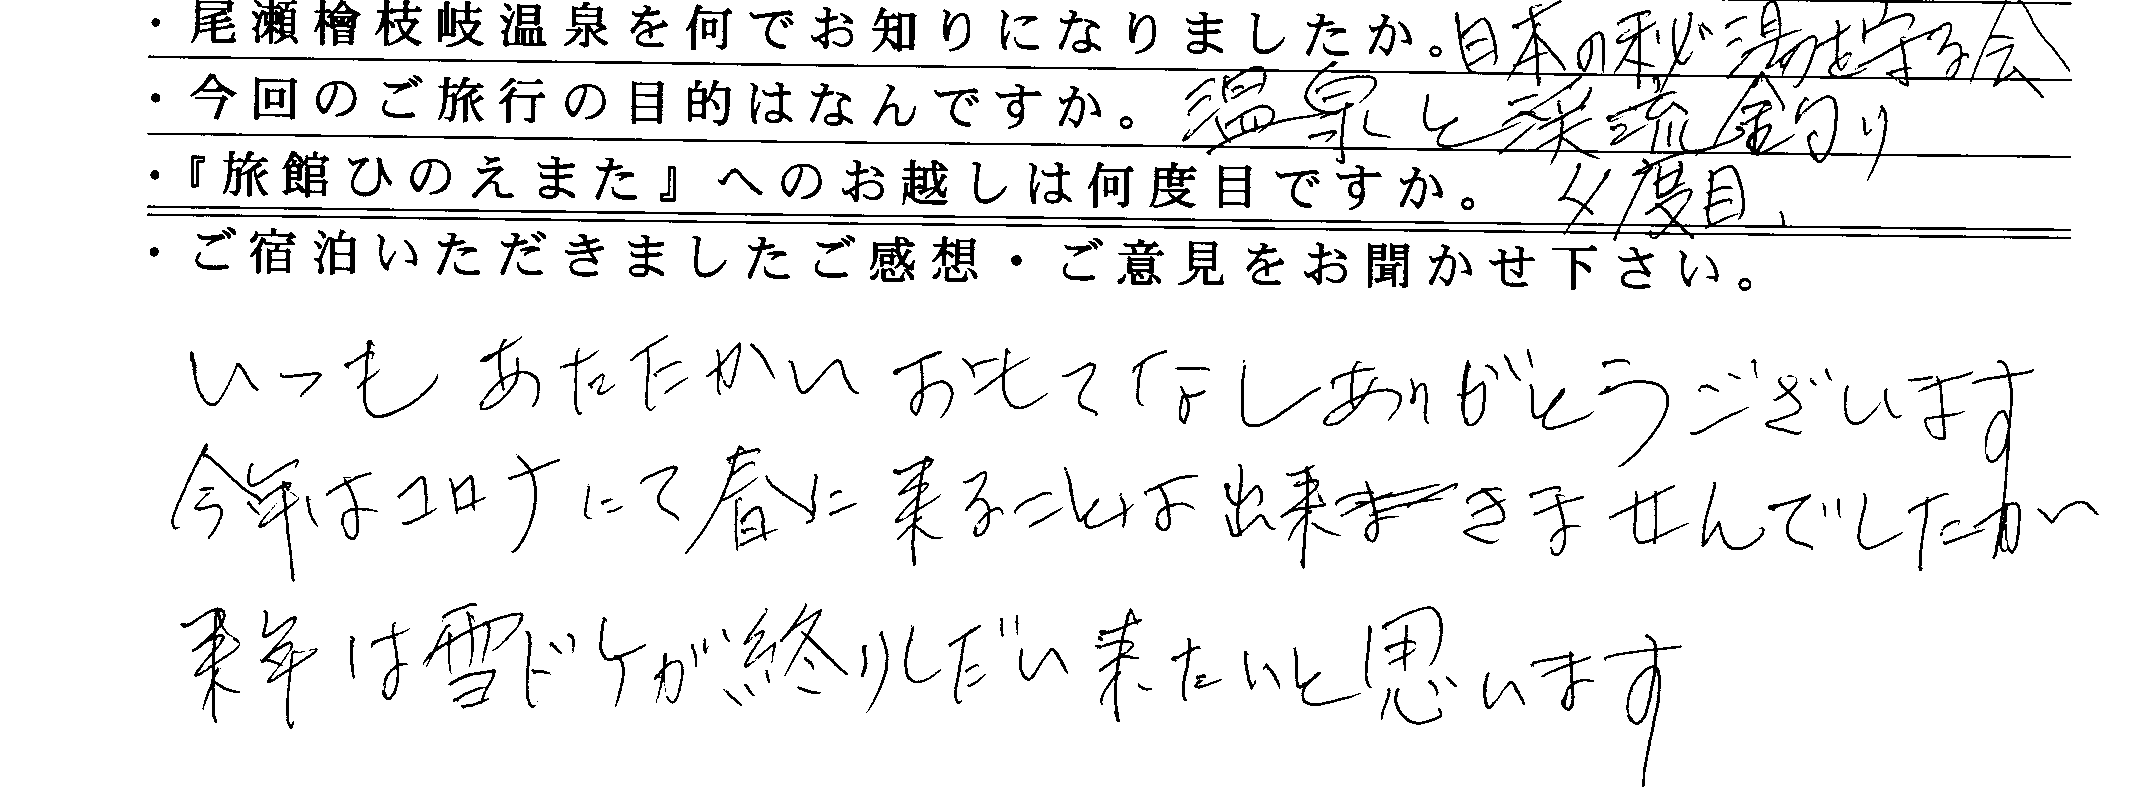 ・尾瀬檜枝岐温泉を何でお知りになりましたか。日本の秘湯を守る会
・今回のご旅行の目的はなんですか。温泉と渓流釣り
・『旅館ひのえまた』へのお越しは何度目ですか。度目、
・ご宿泊いただきましたご感想・ご意見をお聞かせ下さい。
いつもあたたかいおもてなしありがとうございます
今年はコロナにて春に来ることは出来きませんでしたが
来年は雪ドケが終りしだい来たいと思います